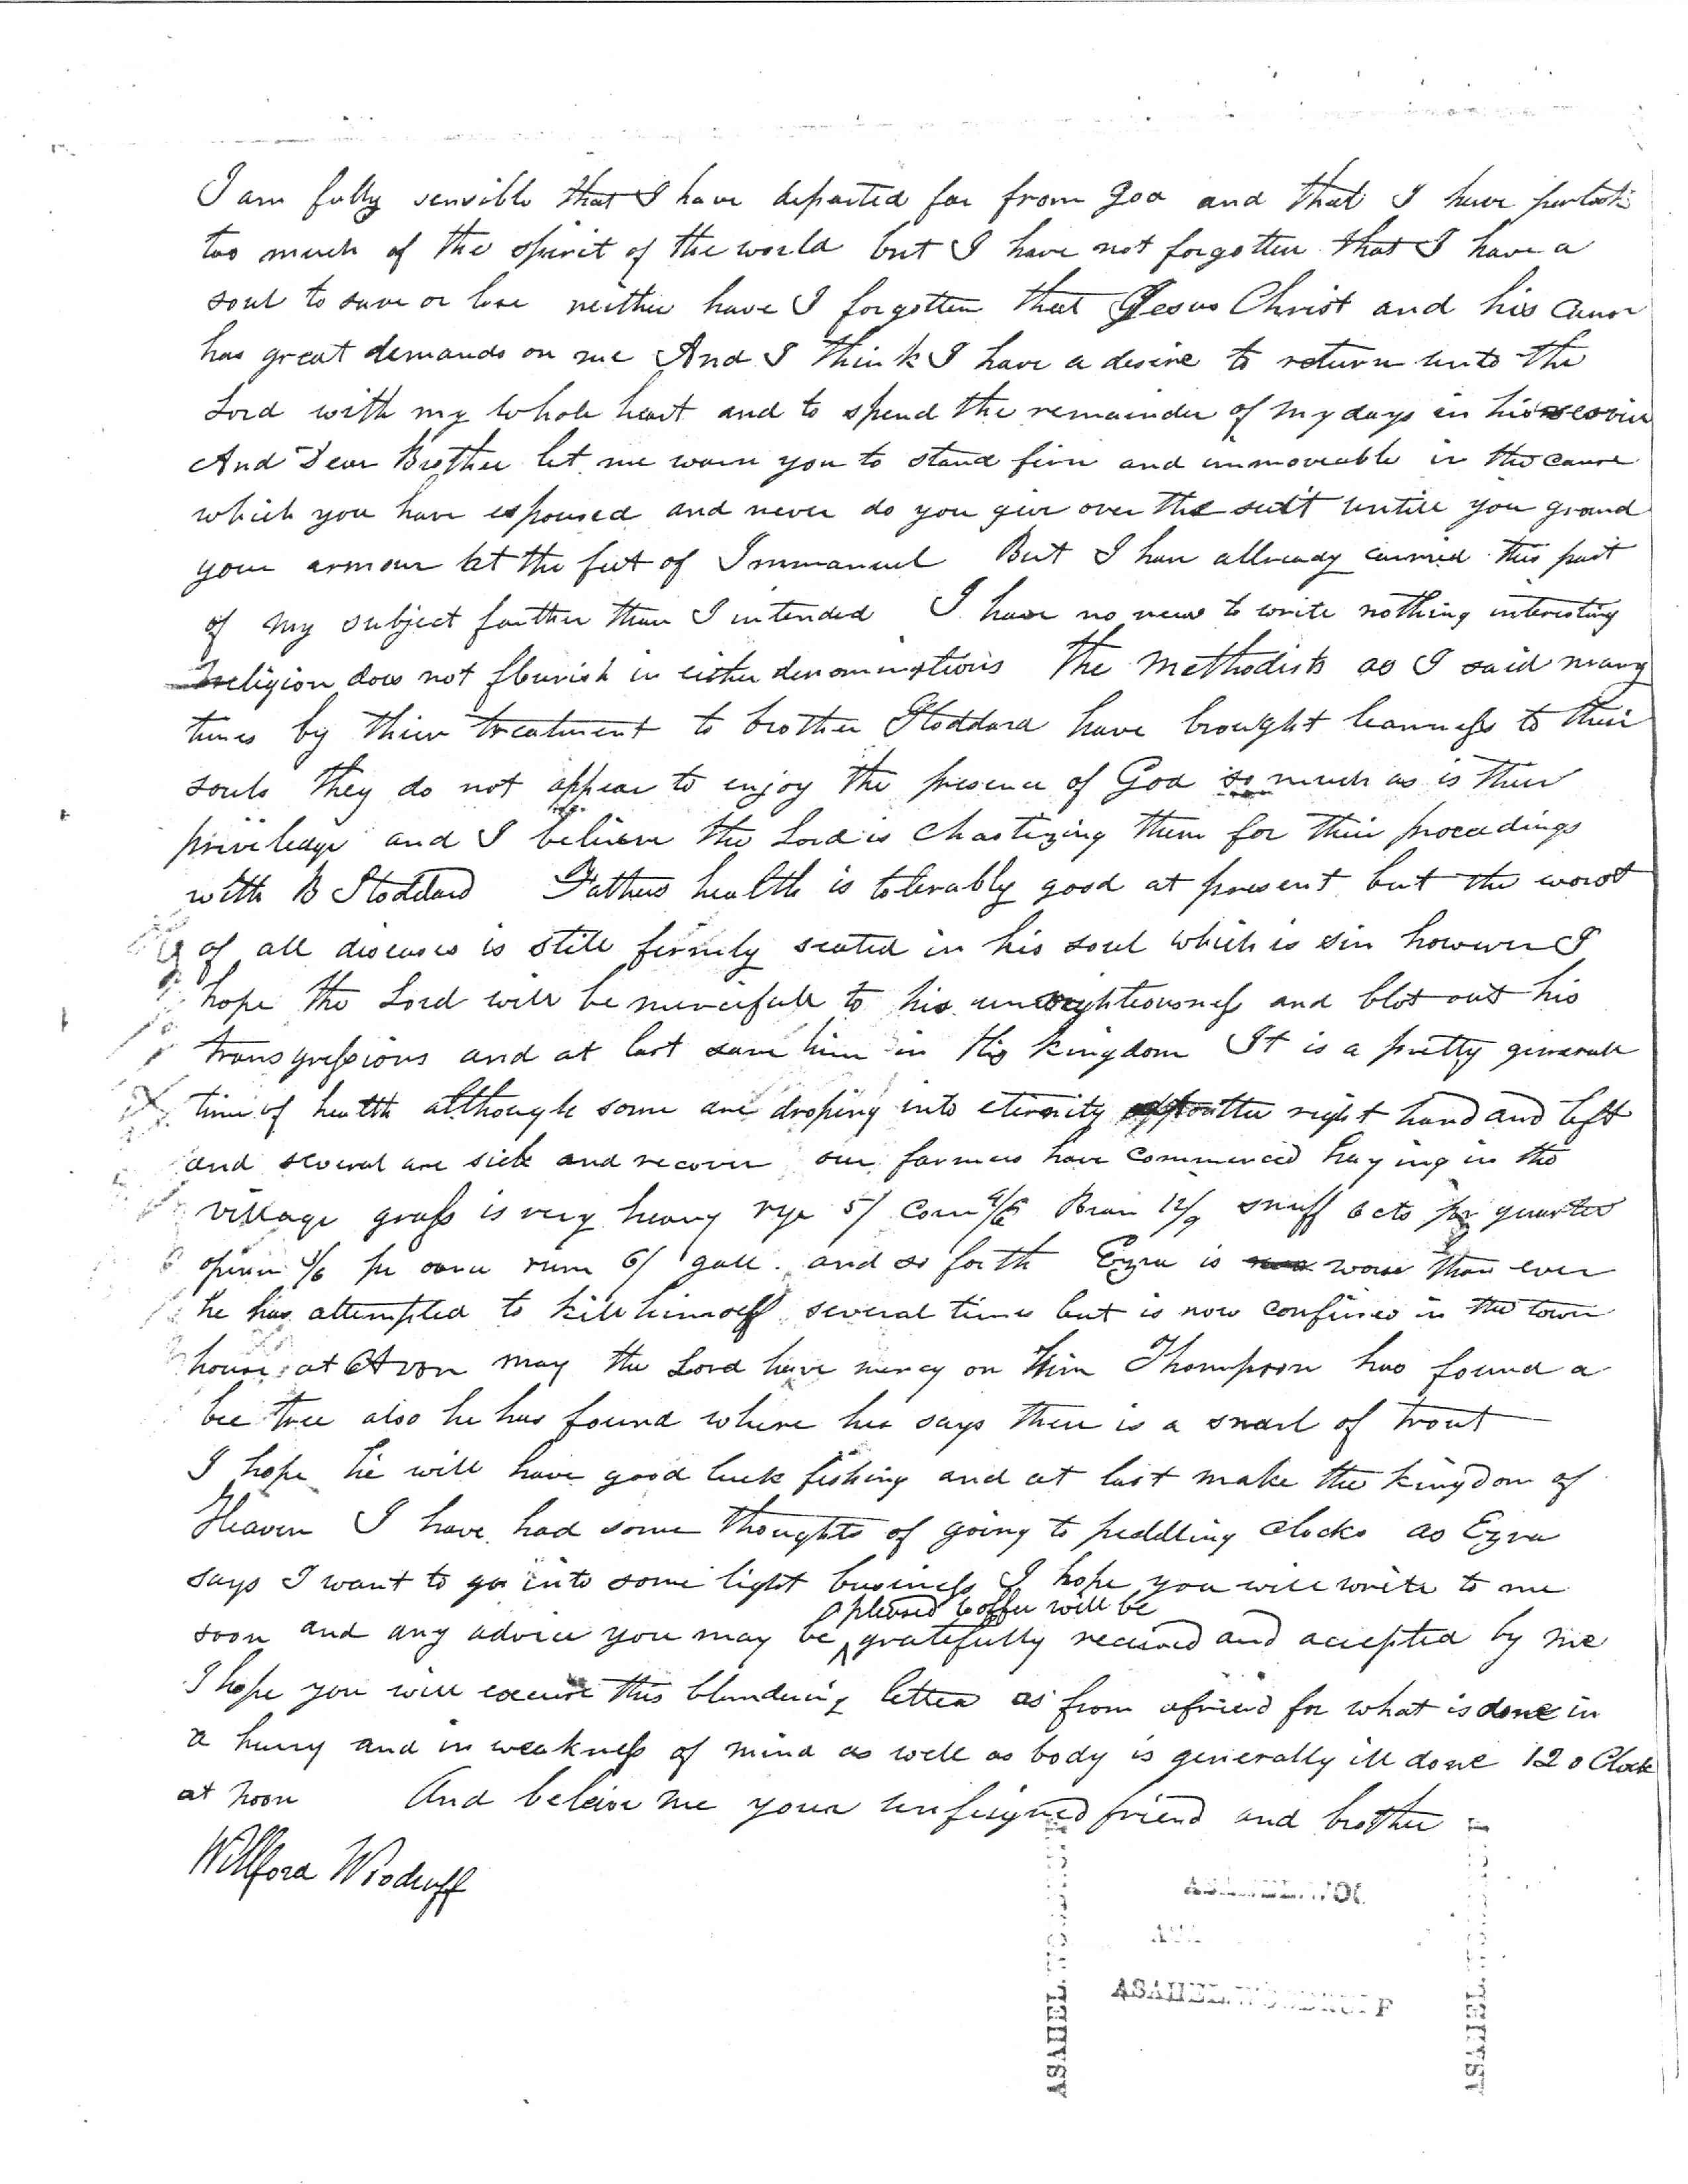 I am fully sensible that I have departed far from God and that I have partook
too much of the spirit of the world but I have not forgotten that I have a
soul to save or lose neither have I forgotten that Jesus Christ and his cause
has great demands on me And I think I have a desire to return unto the
Lord with my whole heart and to spend the remainder of my days in his servic
And Dear Brother let me warn you to stand firm and immoveable in the cause
which you have espoused and never do you give over the suit untill you ground
your armour at the feet of Immanuel But I have allready carried this part
of my subject farther than I intended I have no news to write nothing interesting
religion does not flourish in either denominations The Methodists as I said many
times by thier treatment to brother Stoddard have brought leanness to their
souls they do not appear to enjoy the presence of God so much as is their
priveledge and I believe the Lord is chastizing them for their proceedings
with B Stoddard Fathers health is tolerably good at present but the worst
of all diseases is still firmly seated in his soul which is sin however I
hope the Lord will be mercifull to his unrightiousness and blot out his
transgressions and at last save him in his kingdom It is a pretty generall
time of health although some are droping into eternity on the right hand and left
and several are sick and recover our farmers have commenced haying in the
village grass is very heavy rye 5/ corn 4/6 Bran 12/9 snuff 6 cts pr quarter
opium 4/6 pr ounce rum 6/ gall. and so forth Ezra is worse than ever
he has attempted to kill himself several times but is now confined in the town
house at Avon may the Lord have mercy on him Thompson has found a
bee tree also he has found where hee says there is a snarl of trout
I hope he will have good luck fishing and at last make the kingdom of
Heaven I have had some thoughts of going to peddling clocks as Ezra
says I want to go into some light business I hope you will write to me
pleased to offer will be
soon and any advice you may be ^ gratefully received and accepted by me
I hope you will excuse this blundering letter as from a friend for what is done in
a hurry and in weakness of mind as well as body is generally ill done 12 o Clock
at noon And beleive me your unfeigned friend and brother
Willford Woodruff
ASAHEL
ASAHEL